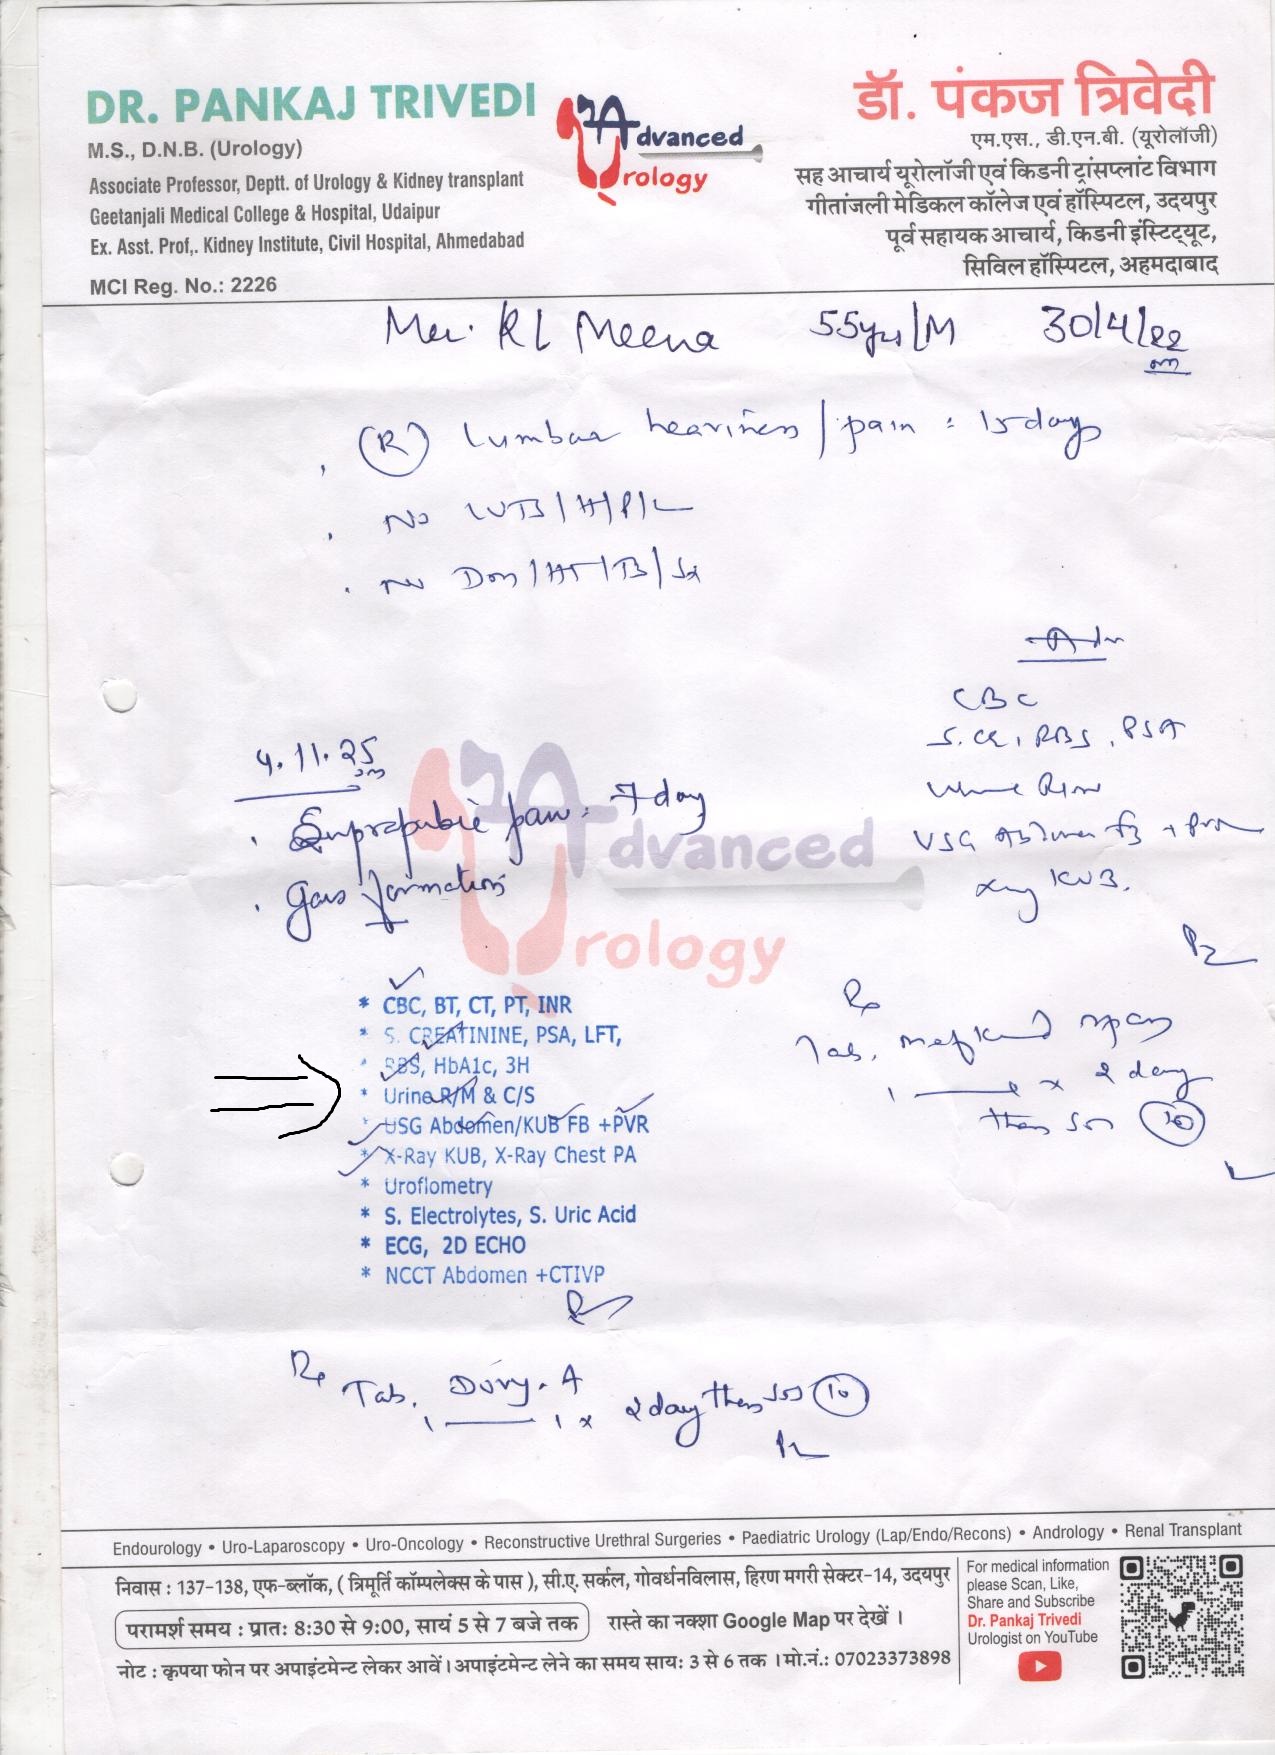 DR. PANKAJ TRIVEDI
M.S., D.N.B. (Urology)
Associate Professor, Deptt. of Urology & Kidney transplant
Geetanjali Medical College & Hospital, Udaipur
Ex. Asst. Prof,. Kidney Institute, Civil Hospital, Ahmedabad
MCI Reg. No.: 2226
Advanced
Urology
डॉ. पंकज त्रिवेदी
एम.एस., डी.एन.बी. (यूरोलॉजी)
सह आचार्य यूरोलॉजी एवं किडनी ट्रांसप्लांट विभाग
गीतांजली मेडिकल कॉलेज एवं हॉस्पिटल, उदयपुर
पूर्व सहायक आचार्य, किडनी इंस्टिट्यूट,
सिविल हॉस्पिटल, अहमदाबाद
Mr. RL Meena 55yrs/M 30/4/22
(R) Lumbar heaviness/pain : 15 days
No LUTS/H/P/L
No Dm/HT/TB/Sx
Adv
CBC
S. Cr, RBS, PSA
Urine R/m
USG Abdomen FB + PVR
Xray KUB.
Rx
Tab. Mefkind spas
1 1 x 2 day
then sos (10)
4.11.25
Suprapubic pain : 7 day
Gas formation
Advanced
Urology
* CBC, BT, CT, PT, INR
* S. CREATININE, PSA, LFT,
* RBS, HbA1c, 3H
* Urine R/M & C/S
* USG Abdomen/KUB FB +PVR
* X-Ray KUB, X-Ray Chest PA
* Uroflometry
* S. Electrolytes, S. Uric Acid
* ECG, 2D ECHO
* NCCT Abdomen +CTIVP
Rx
Tab. A
1 1 x 2 day then sos (10)
Endourology • Uro-Laparoscopy • Uro-Oncology • Reconstructive Urethral Surgeries • Paediatric Urology (Lap/Endo/Recons) • Andrology • Renal Transplant
निवास : 137-138, एफ-ब्लॉक, ( त्रिमूर्ति कॉम्पलेक्स के पास ), सी.ए. सर्कल, गोवर्धनविलास, हिरण मगरी सेक्टर-14, उदयपुर
परामर्श समय : प्रातः 8:30 से 9:00, सायं 5 से 7 बजे तक रास्ते का नक्शा Google Map पर देखें ।
नोट : कृपया फोन पर अपाइंटमेन्ट लेकर आवें। अपाइंटमेन्ट लेने का समय सायः 3 से 6 तक । मो.नं.: 07023373898
For medical information
please Scan, Like,
Share and Subscribe
Dr. Pankaj Trivedi
Urologist on YouTube